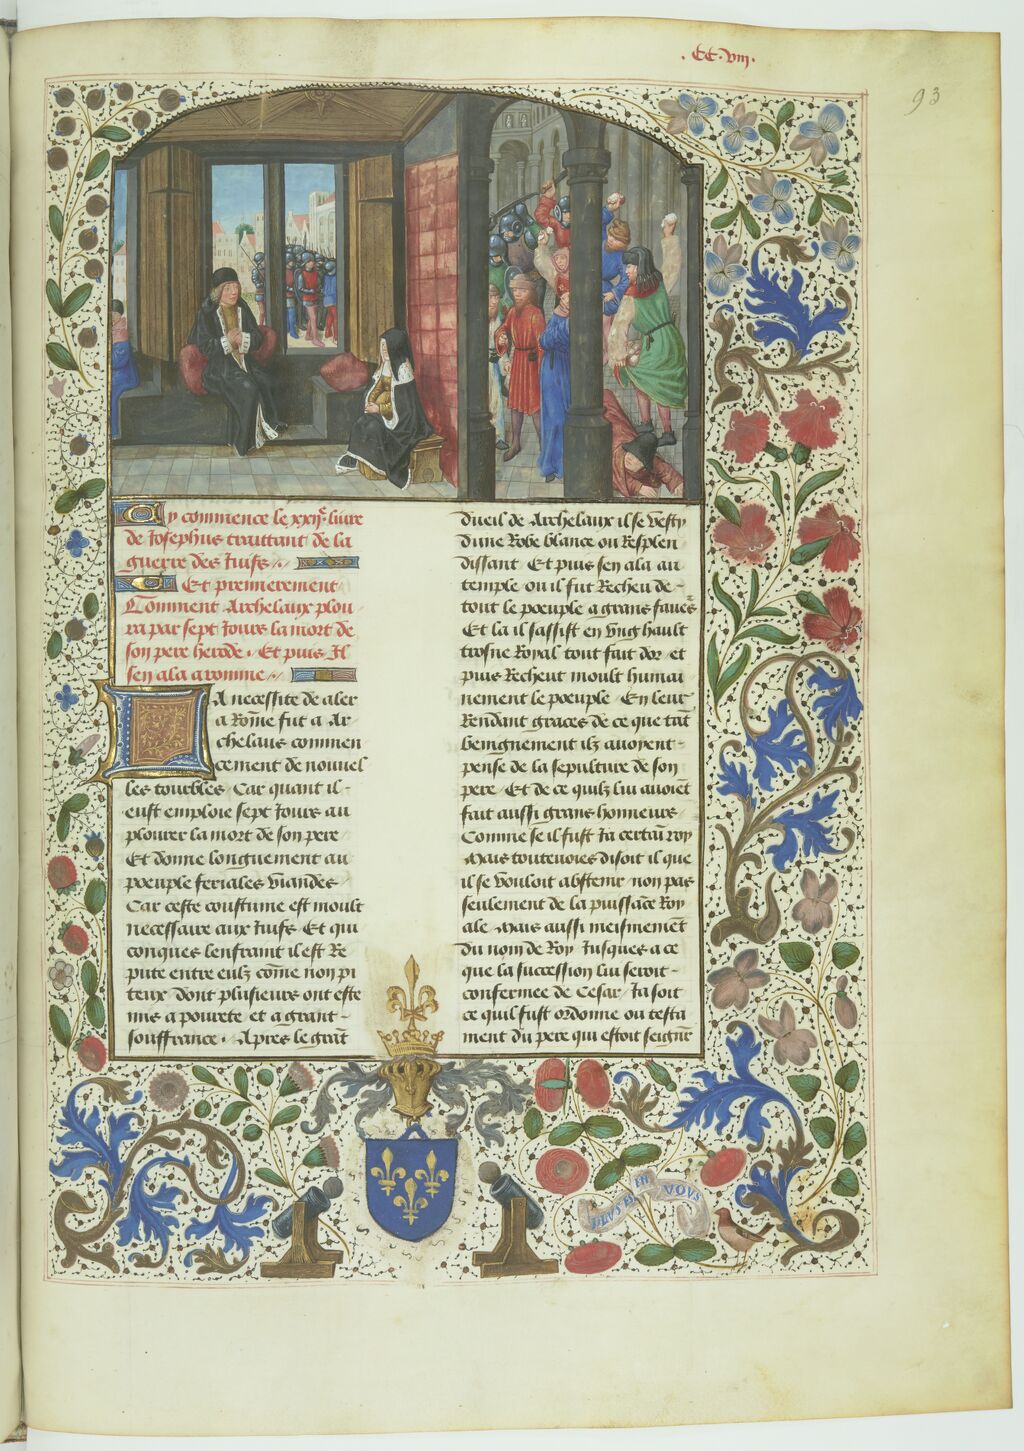 .CC.viij.
93
Cy commence le xxije liure
de Josephus traittant de la
guerre des Juifs /.
Et premierement
Comment Archelaux plou
ra par sept Jours la mort de
son pere herode . Et puis Jl
sen ala a romme /.
LA necessite de aler
a Rome fut a Ar
chelaus commen
cement de nouuel
les tourbles / Car quant il
eust emploie sept Jours au
plourer la mort de son pere /
Et donne longuement au
poeuple feriales viandes /
Car ceste coustume est moult
necessaire aux Juifs / Et qui
conques lenfraint il est Re
pute entre eulz cõme non pi
teux dont plusieurs ont este
mis a pourete et a grant
souffrance . Apres le grãt
dueil de Archelaux il se vesty
dune Robe blance ou Resplen
dissant Et puis sen ala au
temple ou il fut Recheu de
tout le poeuple a grans faueˢ
Et la il sassist en vng hault
trosne Royal tout fait dor et
puis Recheut moult humai
nement le poeuple En leur
Rendant graces de ce que tãt
beingnement ilz auoyent
pense de la sepulture de son
pere / Et de ce quilz lui auoiẽt
fait aussi grans honneurs /
Comme se il fust Ja certaĩ roy
Mais touteuoies disoit il que
il se vouloit abstenir non pas
seulement de la puissãce Roy
ale Mais aussi meismemẽt
du nom de Roy Jusques a ce
que la succession lui seroit
confermee de Cesar / Ja soit
ce quil fust ordonne ou testa
ment du pere qui estoit seignr
PLUS EN VOUS